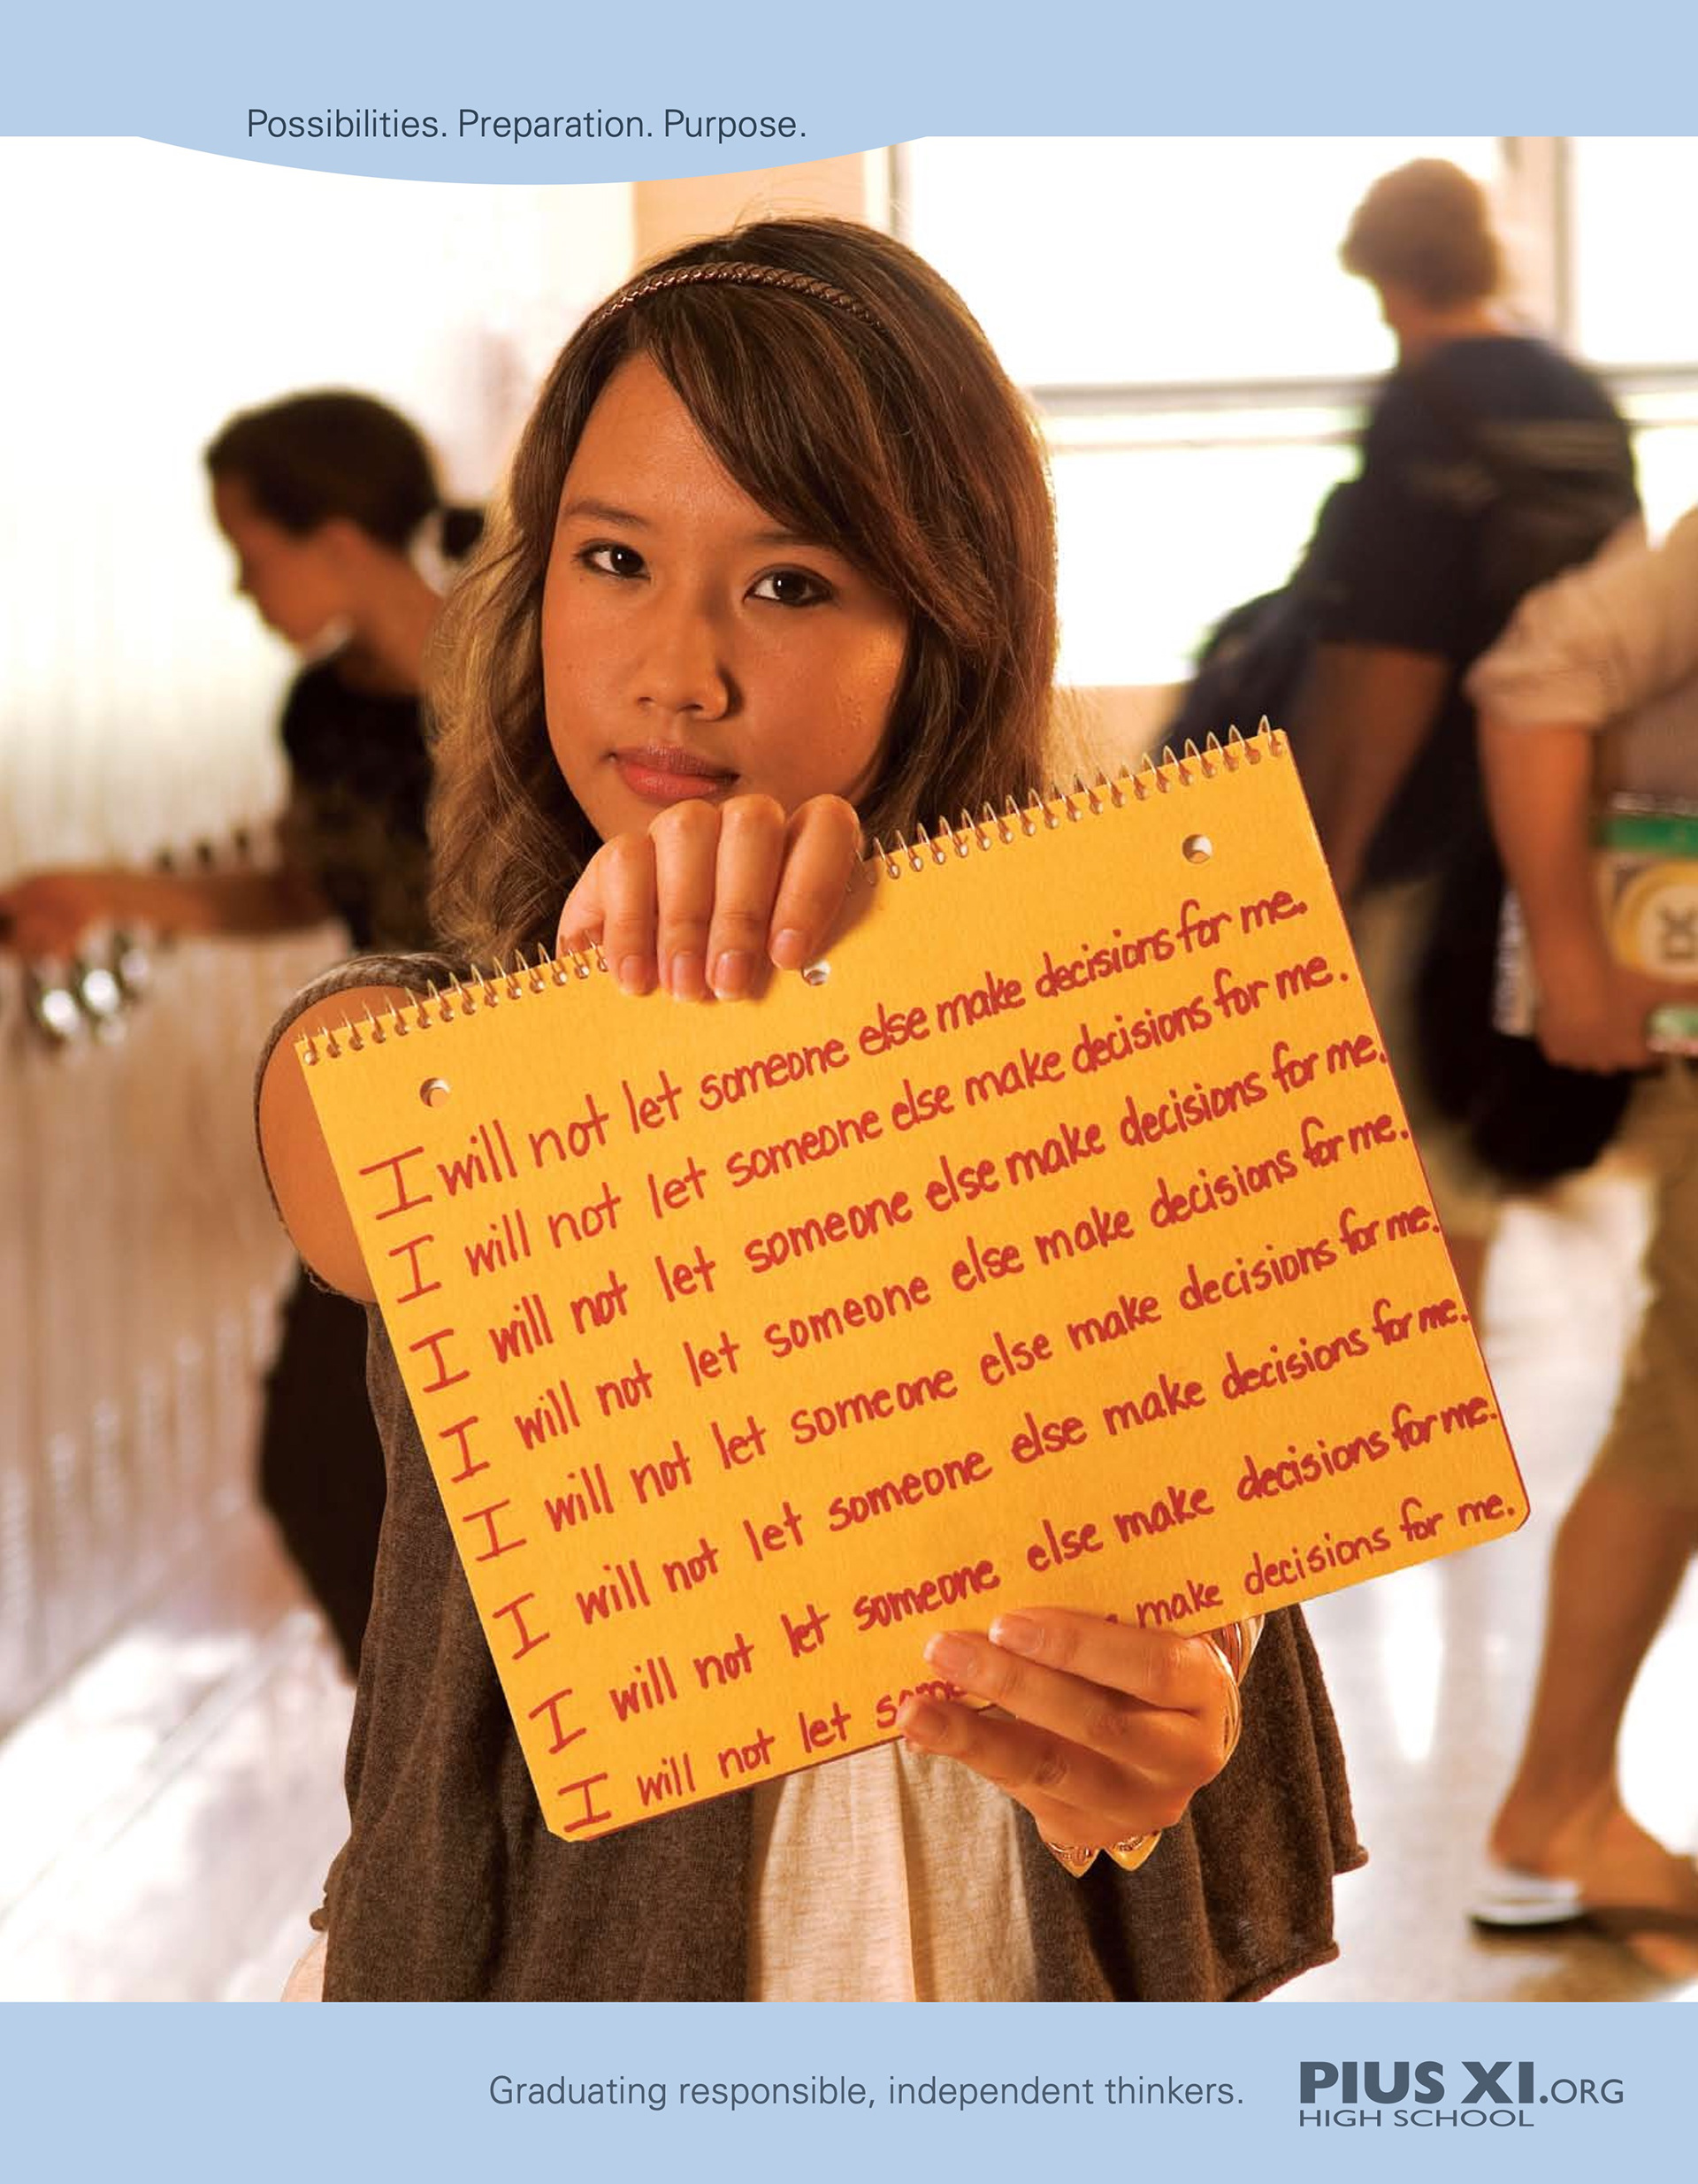 Possibilities. Preparation. Purpose.
I will not let someone else make decisions for me.
I will not let someone else make decisions for me.
I will not let someone else make decisions for me.
I will not let someone else make decisions for me.
I will not let someone else make decisions for me.
I will not let someone else make decisions for me.
I will not let someone else make decisions for me.
I will not let make decisions for me.
Graduating responsible, independent thinkers.
PIUS XI.ORG
HIGH SCHOOL